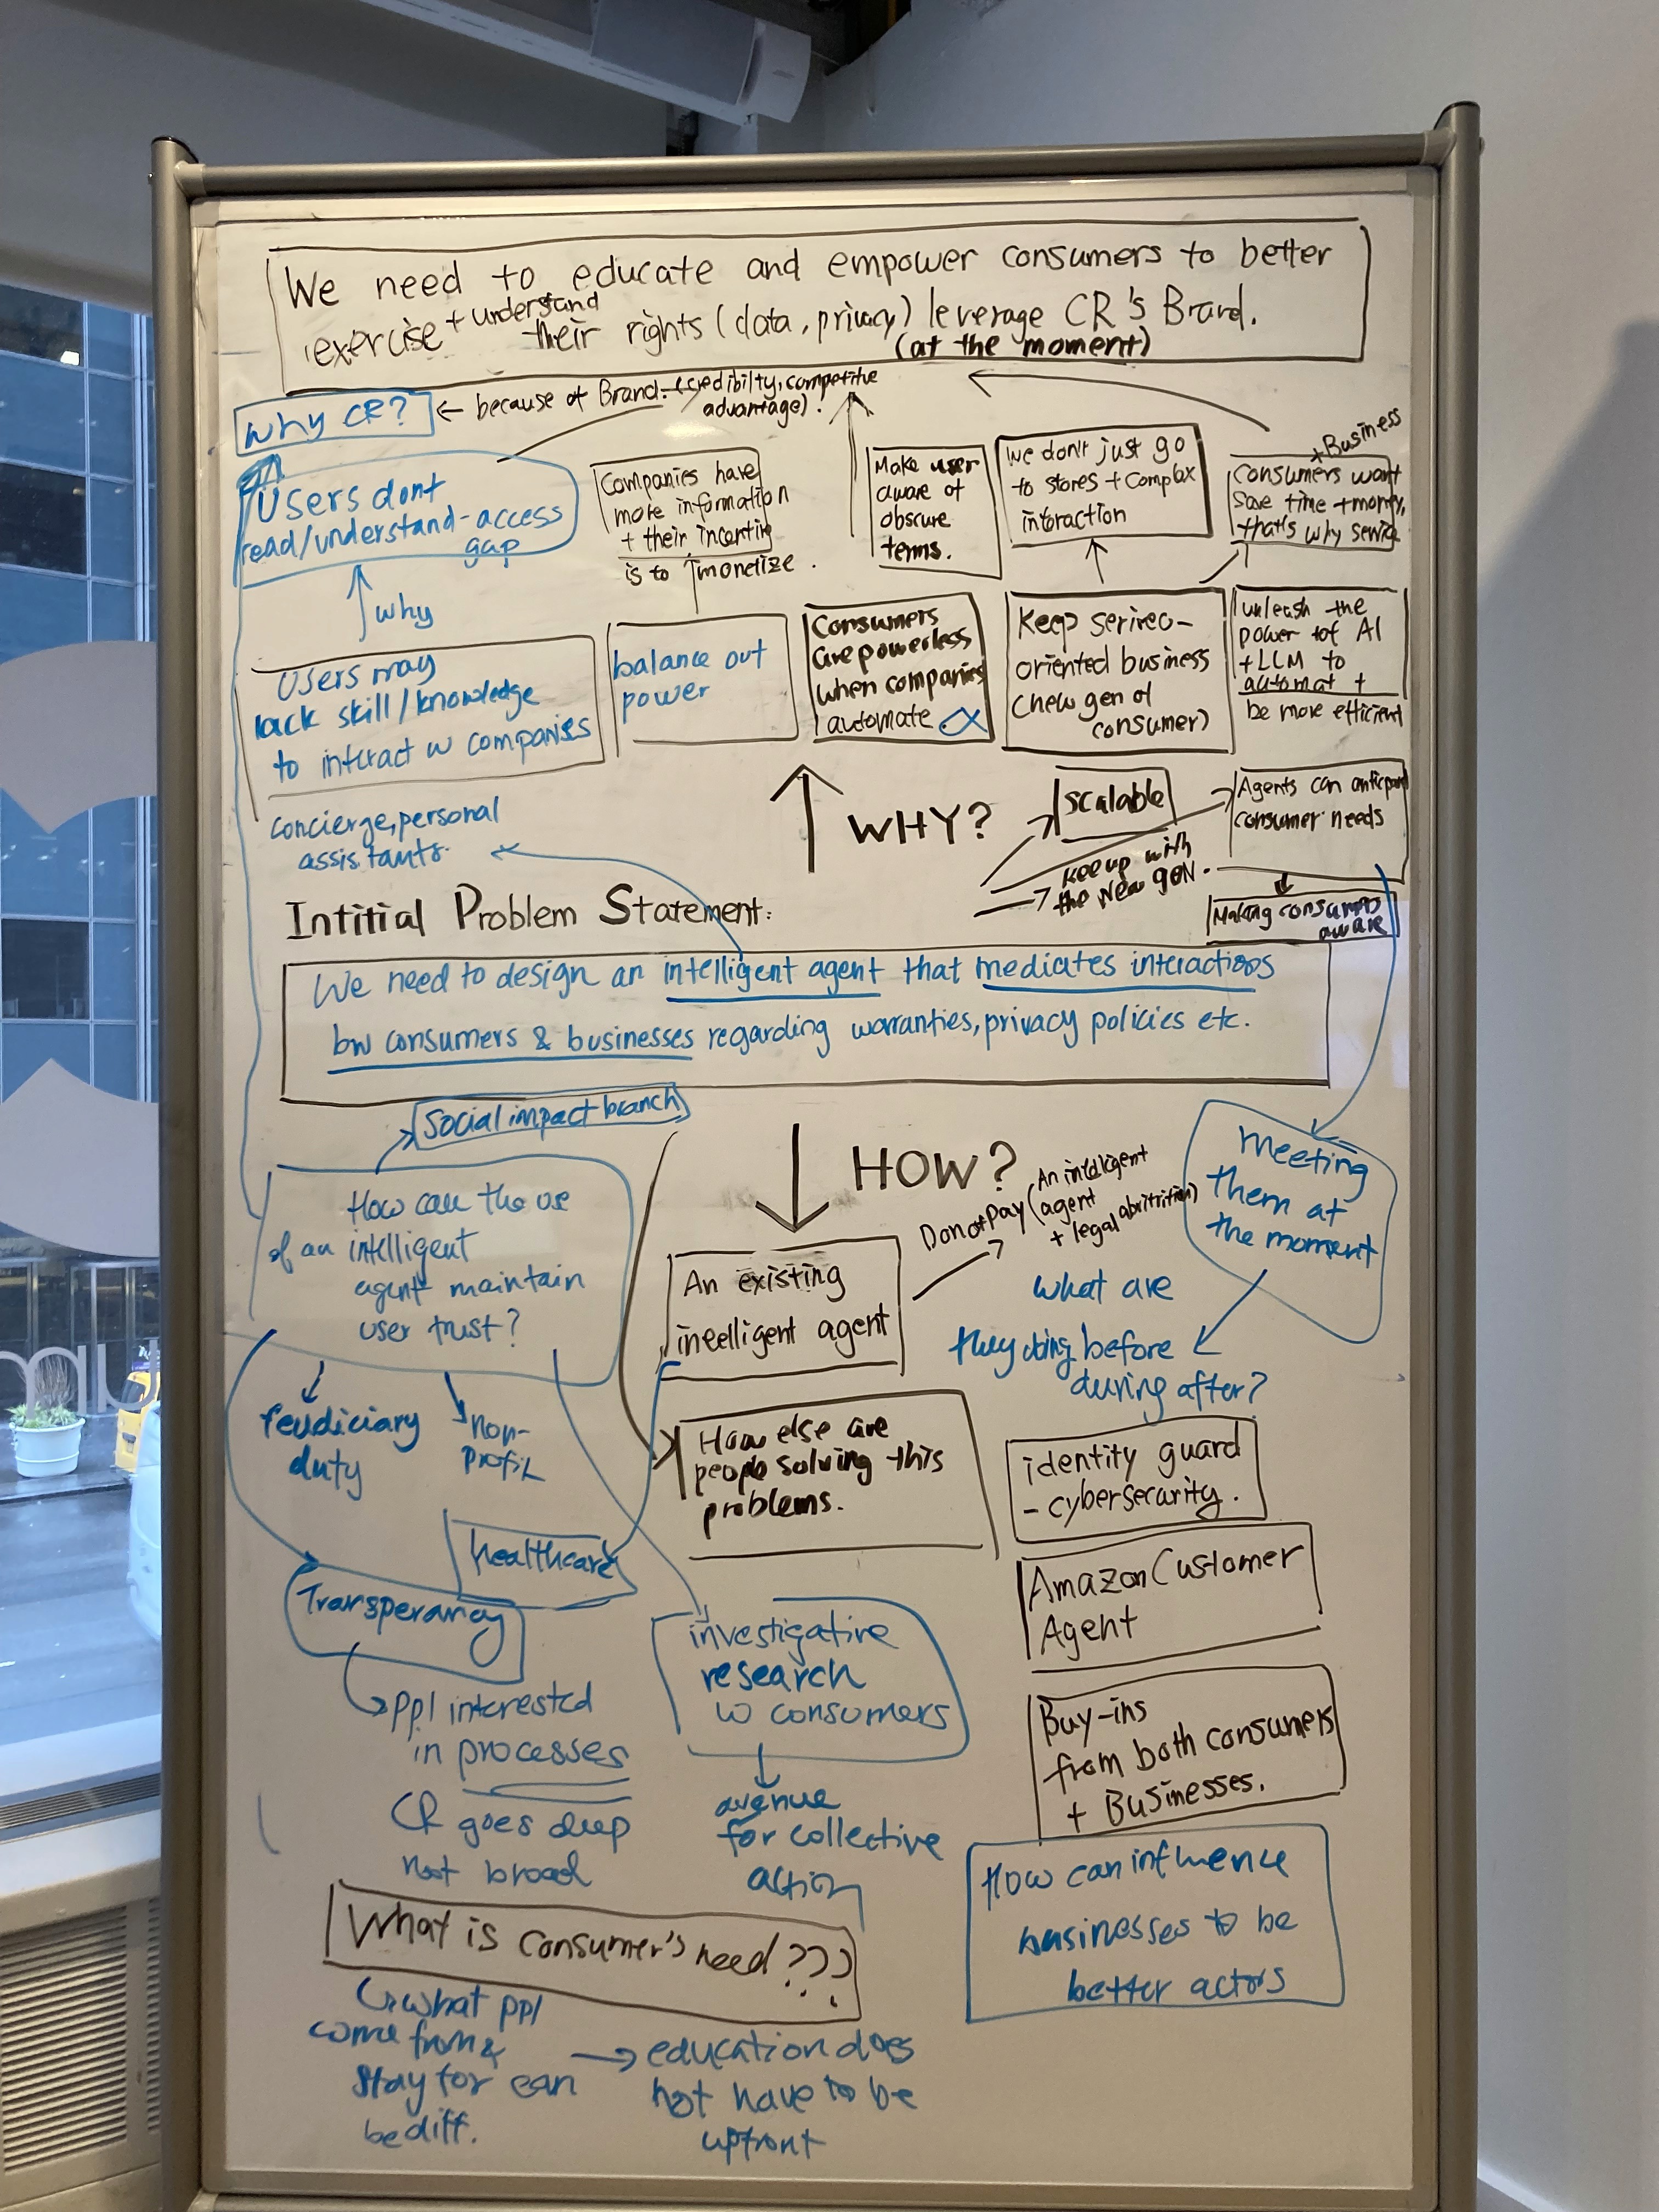 We need to educate and empower consumers to better
exercise + understand their rights (data, privacy) leverage CR's Brand.
(at the moment)
Why CR?
← because of Brand. (credibilty, competitive
advantage).
Users dont
read/understand-access
gap
Companies have
more information
+ their incentive
is to monetize.
Make user
aware of
obscure
terms.
We don't just go
to stores + complex
interaction
+ Business
Consumers want
save time + money,
that's why
why
Users may
lack skill/knowledge
to interact w companies
balance out
power
Consumers
are powerless
when companies
automate
Keep
oriented business
(new gen of
consumer)
unleash the
power of AI
+ LLM to
automat +
be more efficient
concierge, personal
assistants.
WHY?
scalable
keep up with
the new gen.
Agents can
consumer needs
Making
aware
Intitial Problem Statement:
We need to design an intelligent agent that mediates interactions
bw consumers & businesses regarding warranties, privacy policies etc.
Social impact branch
How can the use
of an intelligent
agent maintain
user trust?
HOW?
An existing
inteelligent agent
Donotpay (An intelligent
agent
+ legal
meeting
them at
the moment
what are
they doing before
during after?
feudiciary
duty
non-
profit
How else are
people solving this
problems.
identity guard
- cybersecurity.
healthcare
Transperancy
Amazon Customer
Agent
investigative
research
w consumers
ppl interested
in processes
CR goes deep
not broad
Buy-ins
from both consumers
+ Businesses.
avenue
for collective
action
How can influence
businesses to be
better actors
What is consumer's need???
what ppl
come from &
stay for can
be diff.
→ education does
not have to be
upfront